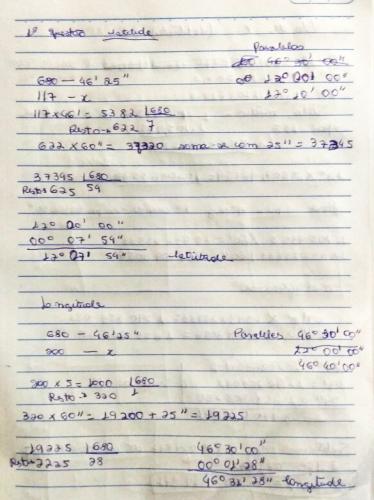 1ª questão latitude
Paralelos
46° 30' 00"
680 — 46' 25" 17° 00' 00"
117 — x 17° 10' 00"
117 x 46' = 5382 |680
Resto → 622 7
622 x 60" = 37320 soma-se com 25" = 37345
37345 |680
Resto → 625 54
17° 00' 00"
00° 07' 54"
17° 07' 54" latitude
Longitude
680 — 46' 25" Paralelos 46° 30' 00"
200 — x 00' 00"
46° 40' 00"
200 x 5 = 1000 |680
Resto → 320 1
320 x 60" = 19200 + 25" = 19225
19225 |680 46° 30' 00"
Resto → 28 00° 01' 28"
46° 31' 28" longitude